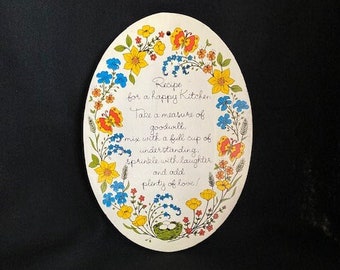 Recipe
for a happy Kitchen
Take a measure of
goodwill,
mix with a full cup of
understanding,
sprinkle with laughter
and add
plenty of love!